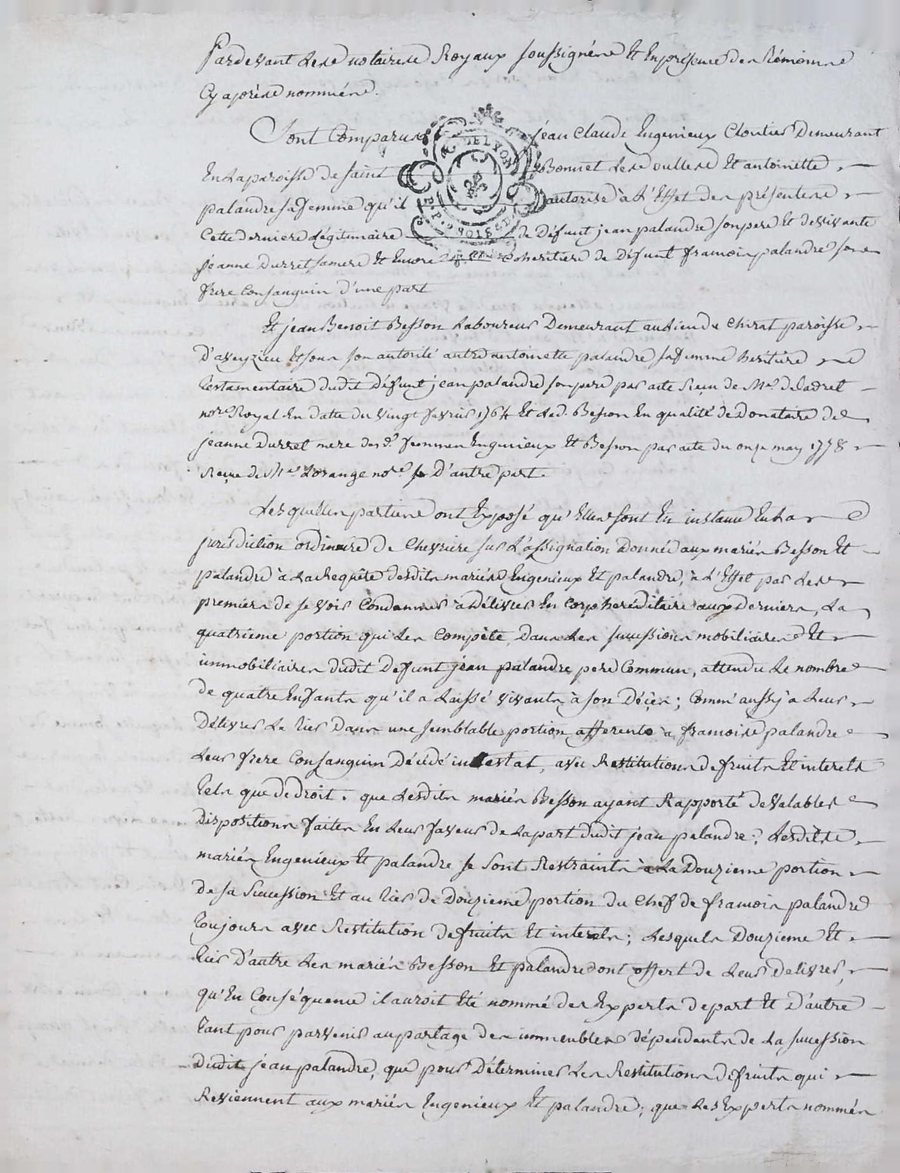 Pardevant les notaires Royaux soussignés Et En présence des témoins
Cy après nommés.
Sont Comparus jean Claude Ingenieux Cloutier Demeurant
En la paroisse de saint Bonnet les oulles Et antoinette
palandre sa femme qu'il autorise à l'Effet des présentes
Cette derniere légitimaire de Défunt jean palandre son pere Et de vivante
jeanne Durret sa mere Et Encore Coheritiere de Défunt françois palandre son
frere Consanguin d'une part
Et jean Benoit Besson Laboureur Demeurant au lieu de Chirat paroisse
d'aveyzieu Et sous son autorité autre antoinette palandre sa femme heritiere
testamentaire dudit Défunt jean palandre son pere par acte Reçu de Me.
nore. Royal En datte du vingt fevrier 1764 Et led. Besson En qualité de Donataire de
jeanne Durret mere desd. femmes Ingenieux Et Besson par acte du onze may 1778
Reçu de Me. Lorange nore. D'autre part.
Lesquelles parties ont Exposé qu'Elles sont En instance En la
jurisdiction ordinaire de Chevriere sur l'assignation Donnée aux mariés Besson Et
palandre à la Requête desdits mariés Ingenieux Et palandre, à l'Effet par les
premiers de se voir Condamner à Délivrer En corps hereditaire aux Derniers, La
quatrieme portion qui les Compéte Dans les successions mobiliaires Et
immobiliaires dudit Defunt jean palandre pere Commun, attendu le nombre
de quatre Enfants qu'il a Laissé vivants à son Décès; Comm'aussy à leur
Délivrer le tiers Dans une semblable portion afferente à françois palandre
Leur frere Consanguin Décédé intestat, avec Restitution de fruits Et interets
tels que de droit. que lesdits mariés Besson ayant Rapporté de valables
Dispositions faites En leur faveur de la part dudit jean palandre; lesdits
mariés Ingenieux Et palandre se sont Restraints à la Douzieme portion
de sa succession Et au tiers de Douzieme portion du Chef de françois palandre
toujours avec Restitution de fruits Et interets; Lesquels Douzieme Et
tiers d'autre les mariés Besson Et palandre ont offert de leur Delivrer,
qu'En Conséquence il auroit Eté nommé des Experts de part Et d'autre
tant pour parvenir au partage des immeubles dépendants de la succession
dudit jean palandre, que pour Déterminer les Restitutions de fruits qui
Reviennent aux mariés Ingenieux Et palandre; que les Experts nommés